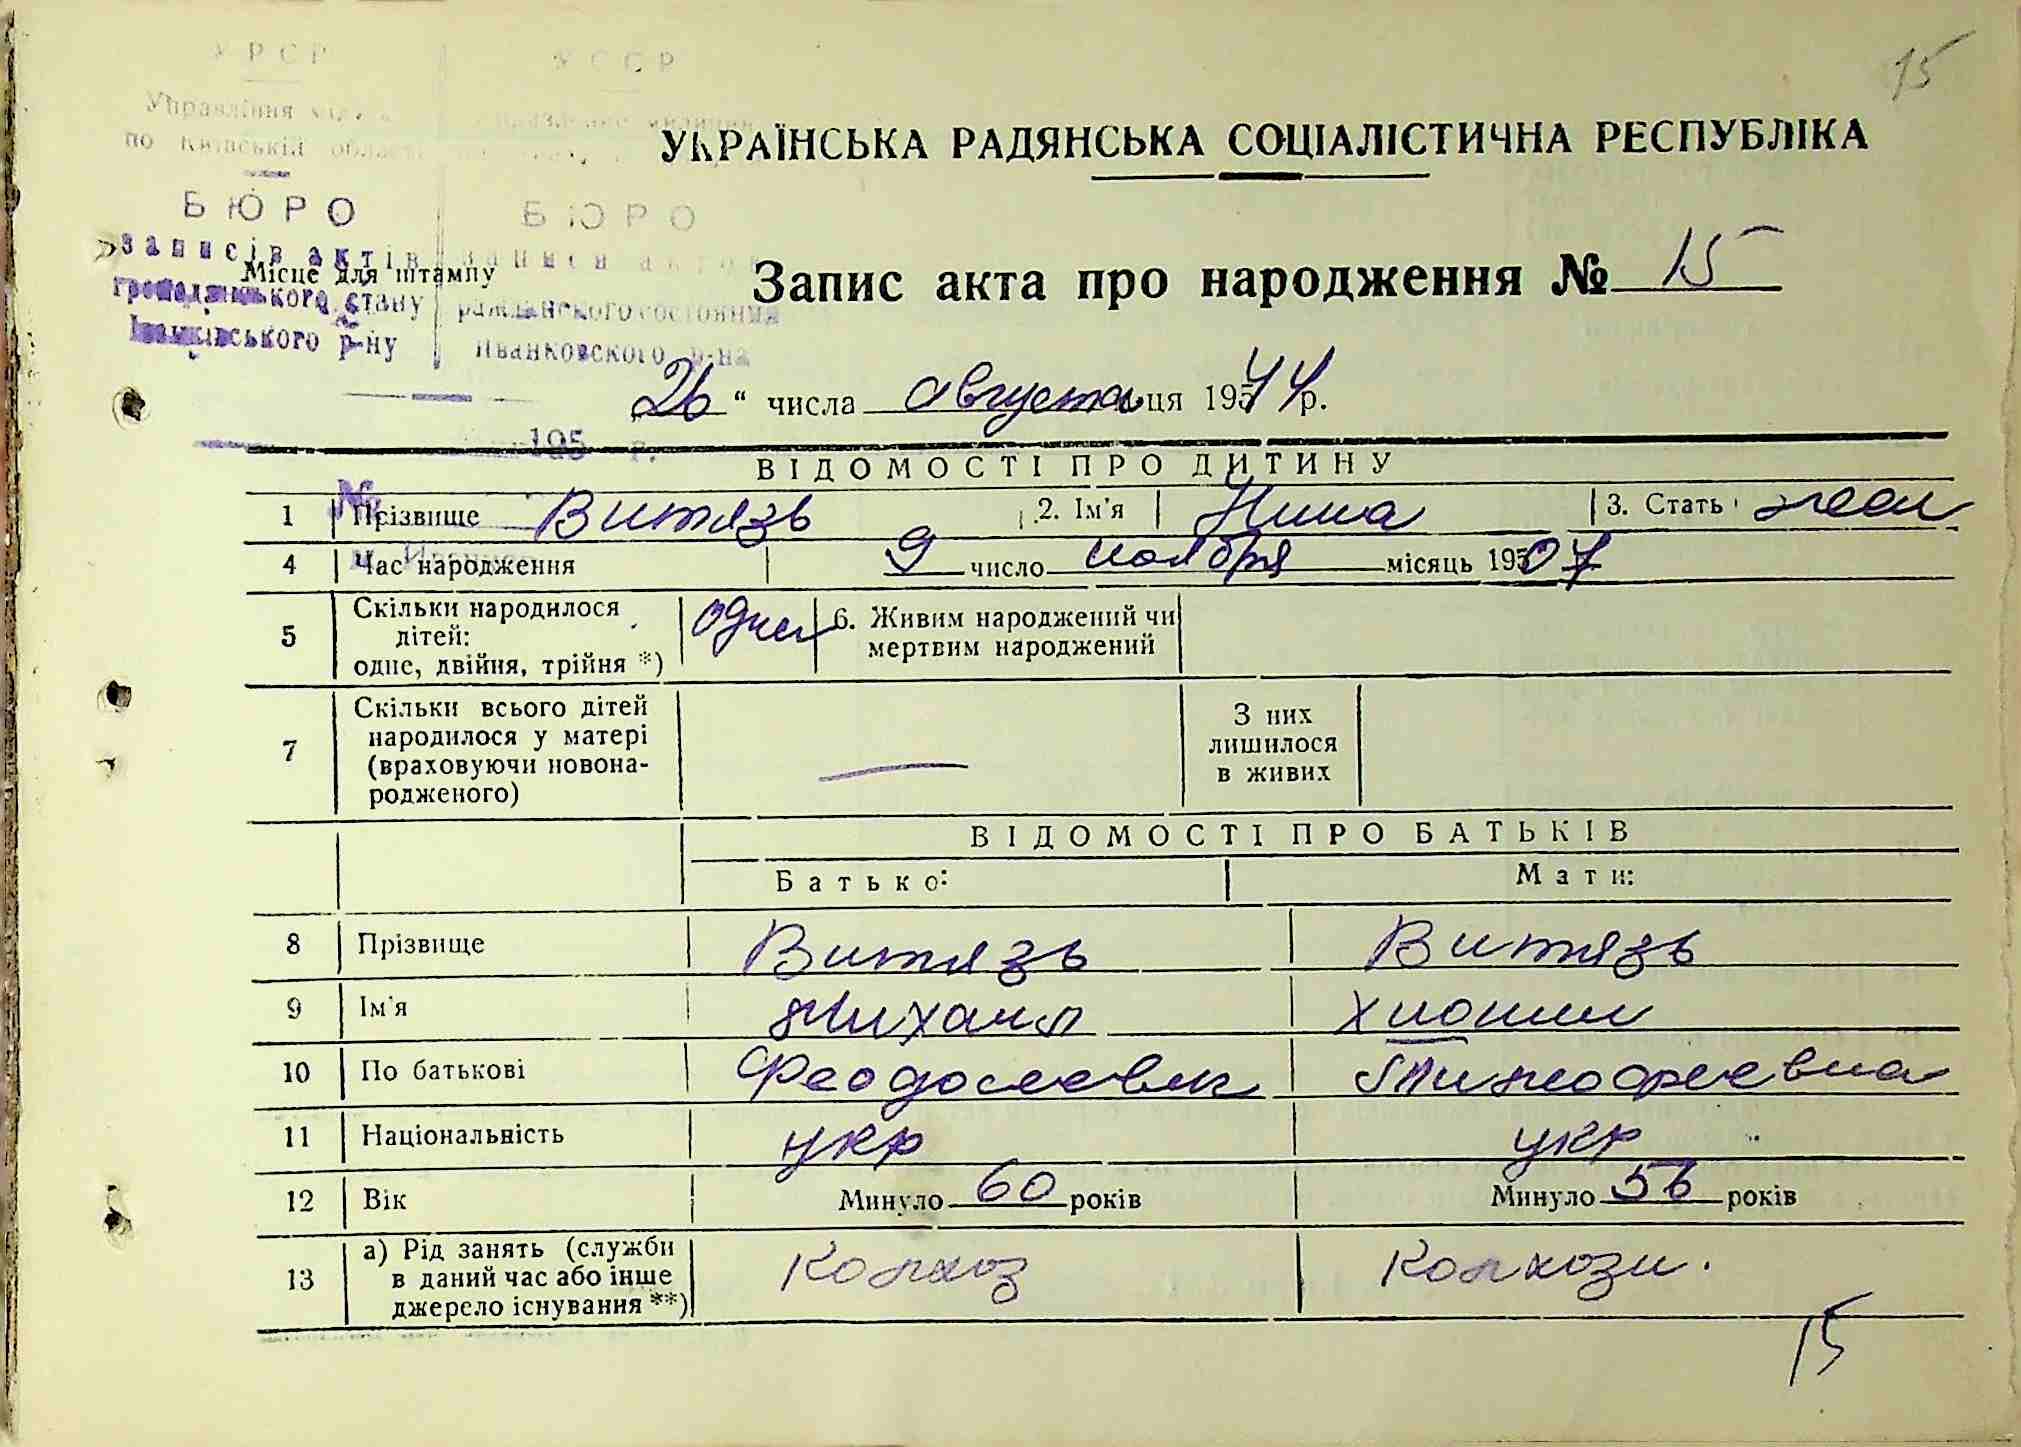 15
УРСР УССР
Управління
по Київській області
БЮРО БЮРО
записів актів записи актов
громадянського стану гражданского состояния
Іванківського р-ну Иванковского р-на
Місце для штампу
УКРАЇНСЬКА РАДЯНСЬКА СОЦІАЛІСТИЧНА РЕСПУБЛІКА
Запис акта про народження № 15
„26“ числа августа ця 1944 р.
195 г.
№
ВІДОМОСТІ ПРО ДИТИНУ
1 Прізвище Витязь 2. Ім'я Нина 3. Стать жен
4 Час народження 9 число ноября місяць 1907
5 Скільки народилося дітей: одне, двійня, трійня *) одна 6. Живим народжений чи мертвим народжений
7 Скільки всього дітей народилося у матері (враховуючи новона-родженого) — З них лишилося в живих
ВІДОМОСТІ ПРО БАТЬКІВ
Батько: Мати:
8 Прізвище Витязь Витязь
9 Ім'я Михаил
10 По батькові Феодосеевич Тимофеевна
11 Національність укр укр
12 Вік Минуло 60 років Минуло 56 років
13 а) Рід занять (служби в даний час або інше джерело існування **) Колхоз Колхозн.
15